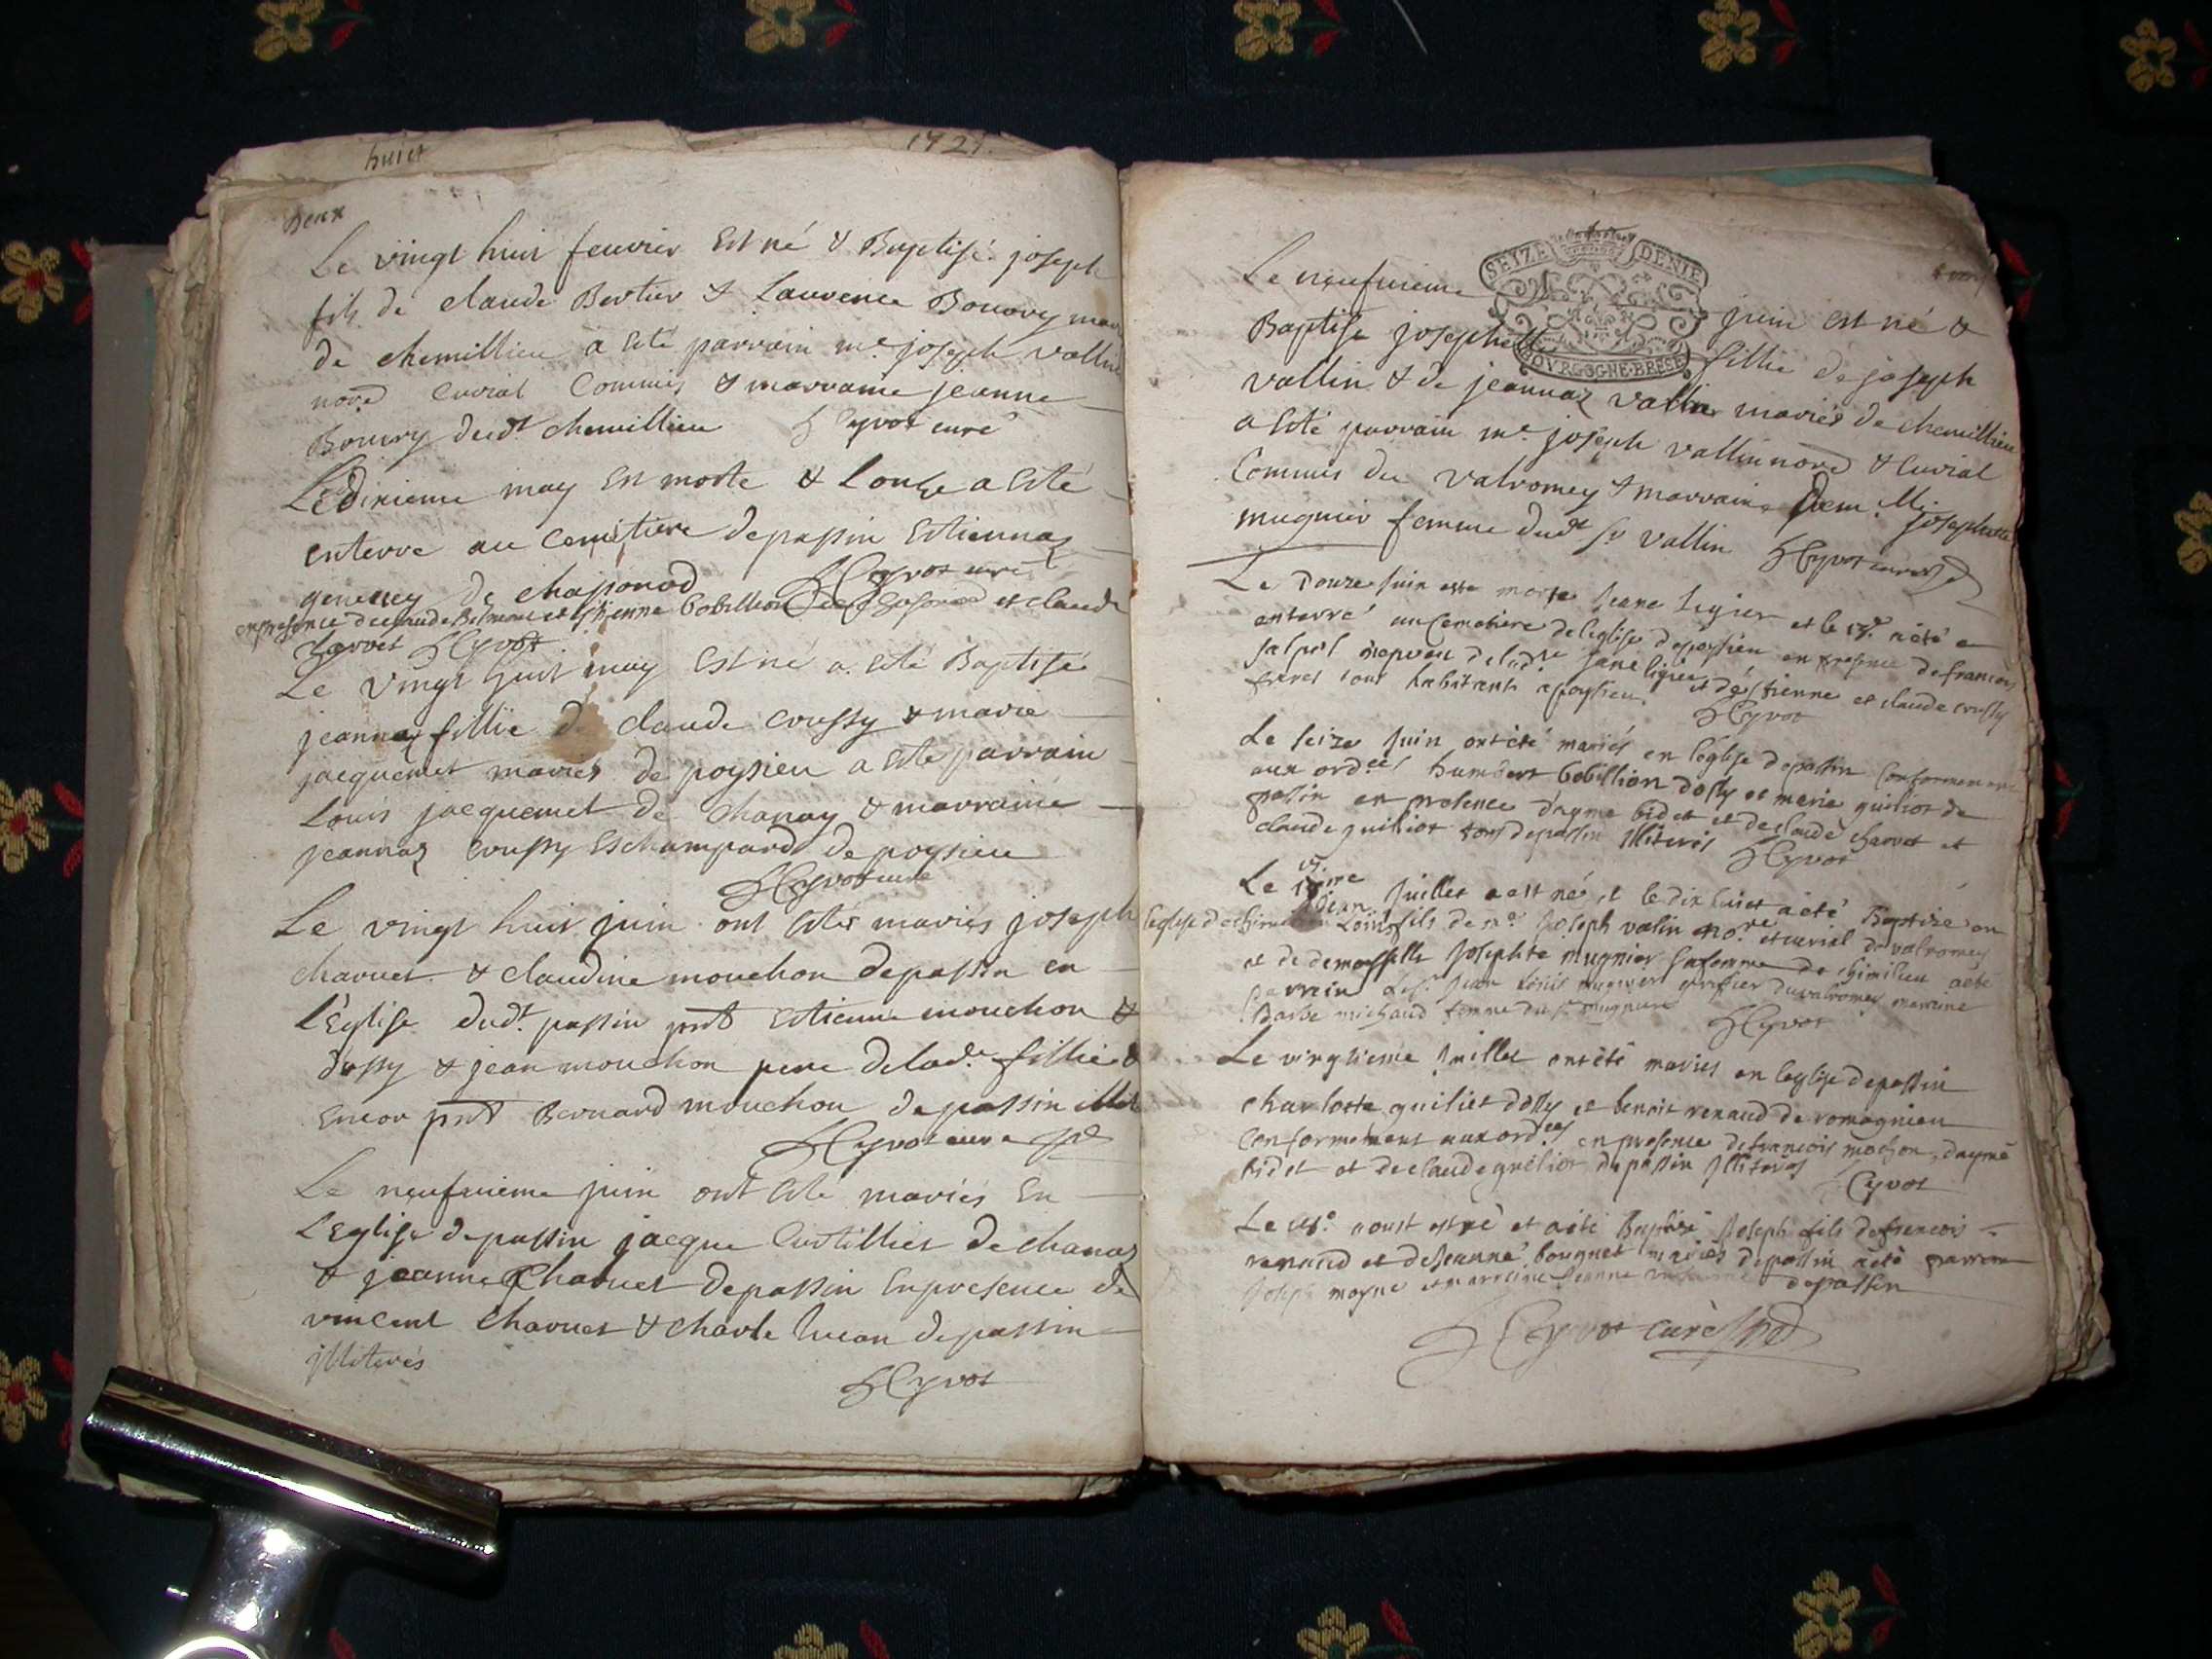 huict
1721.
Deux
Le vingt huit feuvrier est né & Baptisé joseph
fils de claude Bertier & Laurence Bouvry
de chemillieu a esté parrain me. joseph vallin
nore. curial Commis & marraine jeanne
Bouvry dudt. chemillieu Heyvot curé
Le dixieme may est morte & Lonze a esté
enterre au Cemitiere de passin Estiennaz
de chaponod Heyvot curé
en presence de claude et estienne bobillion de et claude
charvet Heyvot
Le vingt huit may est né a esté Baptisé
jeannaz fillie de claude crussy & marie
jacquemet mariés de poysieu a esté parrain
Louis jacquemet de Chanay & marraine
jeannaz crussy Eschampard de poysieu
Heyvot curé
Le vingt huit juin ont estés mariés joseph
charvet & claudine mouchon de passin en
l'Eglise dudt. passin pnt Estienne mouchon &
dossy & jean mouchon pere de lade. fillie &
encor pnt Bernard mouchon de passin
Heyvot curé
Le neufvieme juin ont esté mariés En
L'Eglise de passin jacque Curtillier de chanaz
& jeanne Charvet de passin En presence de
vincent Charvet & Charle de passin
jlliterés
Heyvot
SEIZE DENIE
BOVRGOGNE·BRESE
Le neufvieme juin est né &
Baptisé josephette fillie de joseph
vallin & de jeannaz vallin mariés de chemillieu
a esté parrain me. joseph vallin nore & Curial
Commis du valromey & marraine Demlle. josephette
mugnier femme dudt sr vallin Heyvot curé
Le Douze juin este morte jeane ligier et le 13e a été
enterré au Cemetiere de l'eglise de passin en presence de francois
nepveu de ladte jane ligier et d'estienne et claude crussy
freres tous habitants a poysieu. Heyvot
Le seize juin ont été mariés en l'eglise de passin Conformement
aux ordces humbert bobillion dossy et marie guiliot de
passin en presence d'ayme bidet et de claude charvet et
claude guiliot tous de passin jlliterés Heyvot
Le juillet est né et le dix huict a été Baptizé en
l'eglise de jean Louis fils de me joseph valin nore et curial de valromey
et de demoiselle josephte mugnier sa femme de chimilieu a été
parrain le sr. jean Louis mugnier greffier du valromey marraine
Barbe michaud femme du sr mugnier Heyvot
Le vingtieme juillet ont été mariés en l'eglise de passin
charlotte guiliet dossy et benoit renaud de romagnieu
Conformement aux ordces en presence de francois mochon, d'aymé
bidet et de claude guiliot de passin jlliterés Heyvot
Le aoust est né et a été Baptisé joseph fils de francois
renaud et de jeanne bougnet mariés de passin a été parrain
joseph moyne et marraine jeanne de passin
Heyvot curé